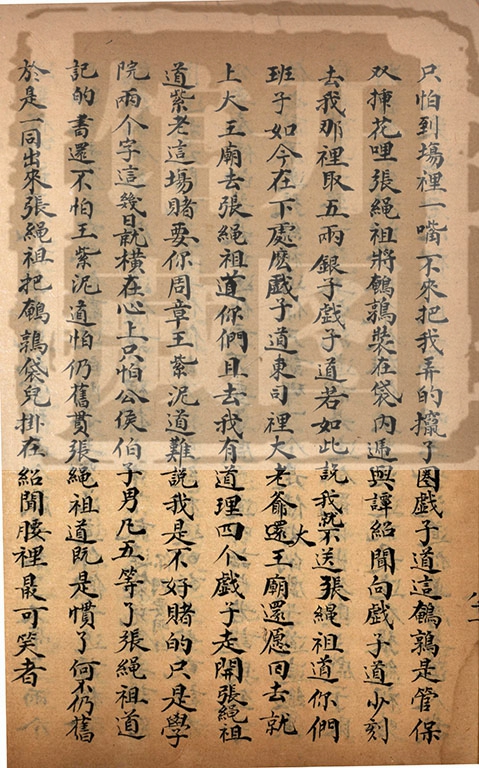 只怕到塲裡一嘴不來把我弄的攛了圏戲子道這鵪鶉是管保
双揷花哩張繩祖將鵪鶉裝在袋内逓與譚紹聞向戲子道少刻
去我那裡取五兩銀子戲子道若如此說我就不送張繩祖道你們
班子如今在下處庅戲子道東司裡大老爺還大王廟還愿回去就
上大王廟去張繩祖道你們且去我有道理四个戲子走開張繩祖
道紫老這場賭要你周章王紫泥道難說我是不好賭的只是學
院兩个字這幾日就橫在心上只怕公侯伯子男凡五等了張繩祖道
記的書還不怕王紫泥道怕仍舊貫張繩祖道既是慣了何不仍舊
於是一同出來張繩祖把鵪鶉袋兒掛在紹聞腰裡最可笑者